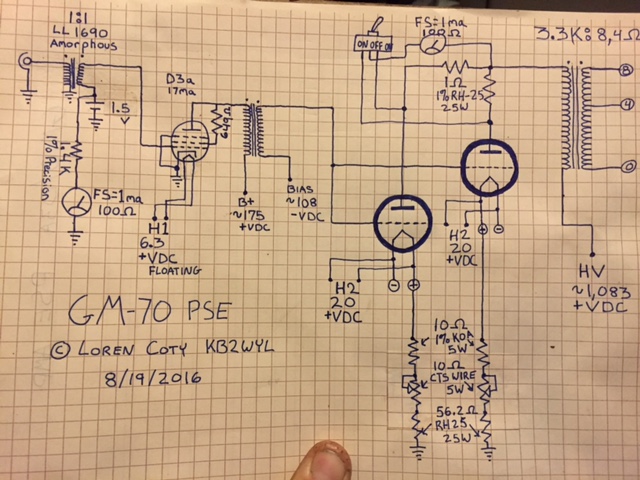 1:1
LL1690
Amorphous
1.5
V
1.4K
1% Precision
FS=1ma
100Ω
D3a
17ma
649Ω
H1
6.3
+VDC
FLOATING
B+
~175
+VDC
BIAS
~108
-VDC
ON OFF ON
FS=1ma
100Ω
1Ω
1% RH-25
25W
3.3K:8,4Ω
8
4
0
H2
20
+VDC
H2
20
+VDC
HV
~1,083
+VDC
10Ω
1% KOA
5W
10Ω
CTS WIRE
5W
56.2Ω
RH25
25W
GM-70 PSE
© LOREN COTY KB2WYL
8/19/2016